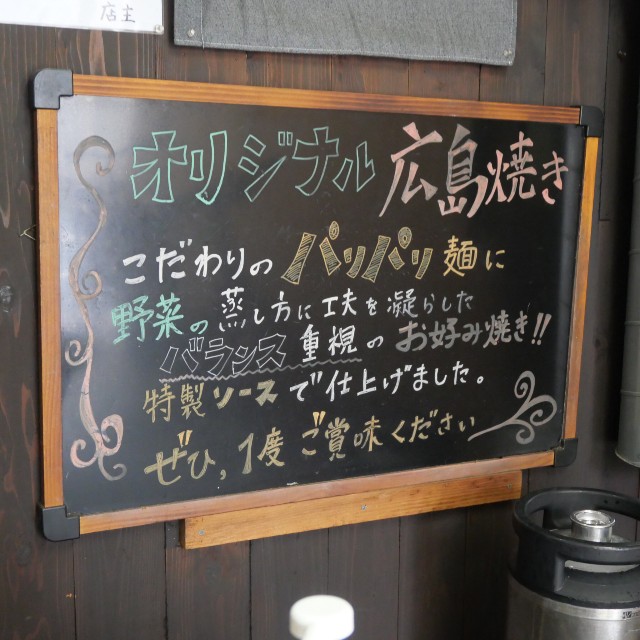 店主
オリジナル 広島焼き
こだわりの パリパリ 麺に
野菜の 蒸し方に 工夫を 凝らした
バランス 重視の お好み焼き!!
特製 ソースで 仕上げました。
ぜひ, 1度 ご賞味ください